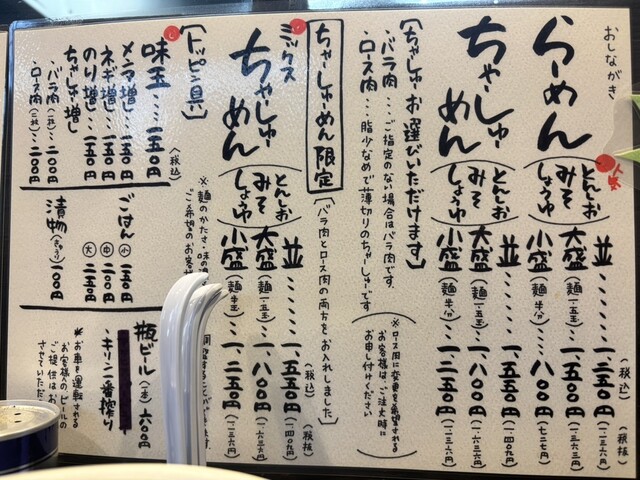 おしながき
らーめん
人気
とんしお
みそ
しょうゆ
(税込) (税抜)
並……一、二五〇円(一、一三六円)
大盛(麺一.五玉)…一、五〇〇円(一三六三円)
小盛(麺半分)……八〇〇円(七二七円)
ちゃーしゅーめん
とんしお
みそ
しょうゆ
並……一、五五〇円(一、四〇九円)
大盛(麺一.五玉)…一、八〇〇円(一六三六円)
小盛(麺半分)…一、二五〇円(一一三六円)
[ちゃしゅーお選びいただけます]
・バラ肉…ご指定のない場合はバラ肉です。
・ロース肉…脂少なめで薄切りのちゃしゅーです
※ロース肉に変更を希望される
お客様はご注文時に
お申し付けください
ちゃーしゅーめん限定
[バラ肉とロース肉の両方をお入れしました]
ミックス
ちゃーしゅーめん
とんしお
みそ
しょうゆ
(税込) (税抜)
並……一、五五〇円(一、四〇九円)
大盛(麺一.五玉)…一、八〇〇円(一六三六円)
小盛(麺半玉)…一、二五〇円(一一三六円)
※麺のかたさ・味の
ご希望のお客様
[トッピン具]
(税込)
味玉…一五〇円
メンマ増し…一五〇円
ネギ増…一五〇円
のり増…一五〇円
ちゃしゅー増し
・バラ肉(一枚)…二〇〇円
・ロース肉(二枚)…二〇〇円
ごはん
小 一五〇円
中 二〇〇円
大 二五〇円
漬物(きゅうり)一〇〇円
瓶ビール(一本)六〇〇円
・キリン一番搾り
※お車を運転される
お客様へのビールの
ご提供はお
させていただ